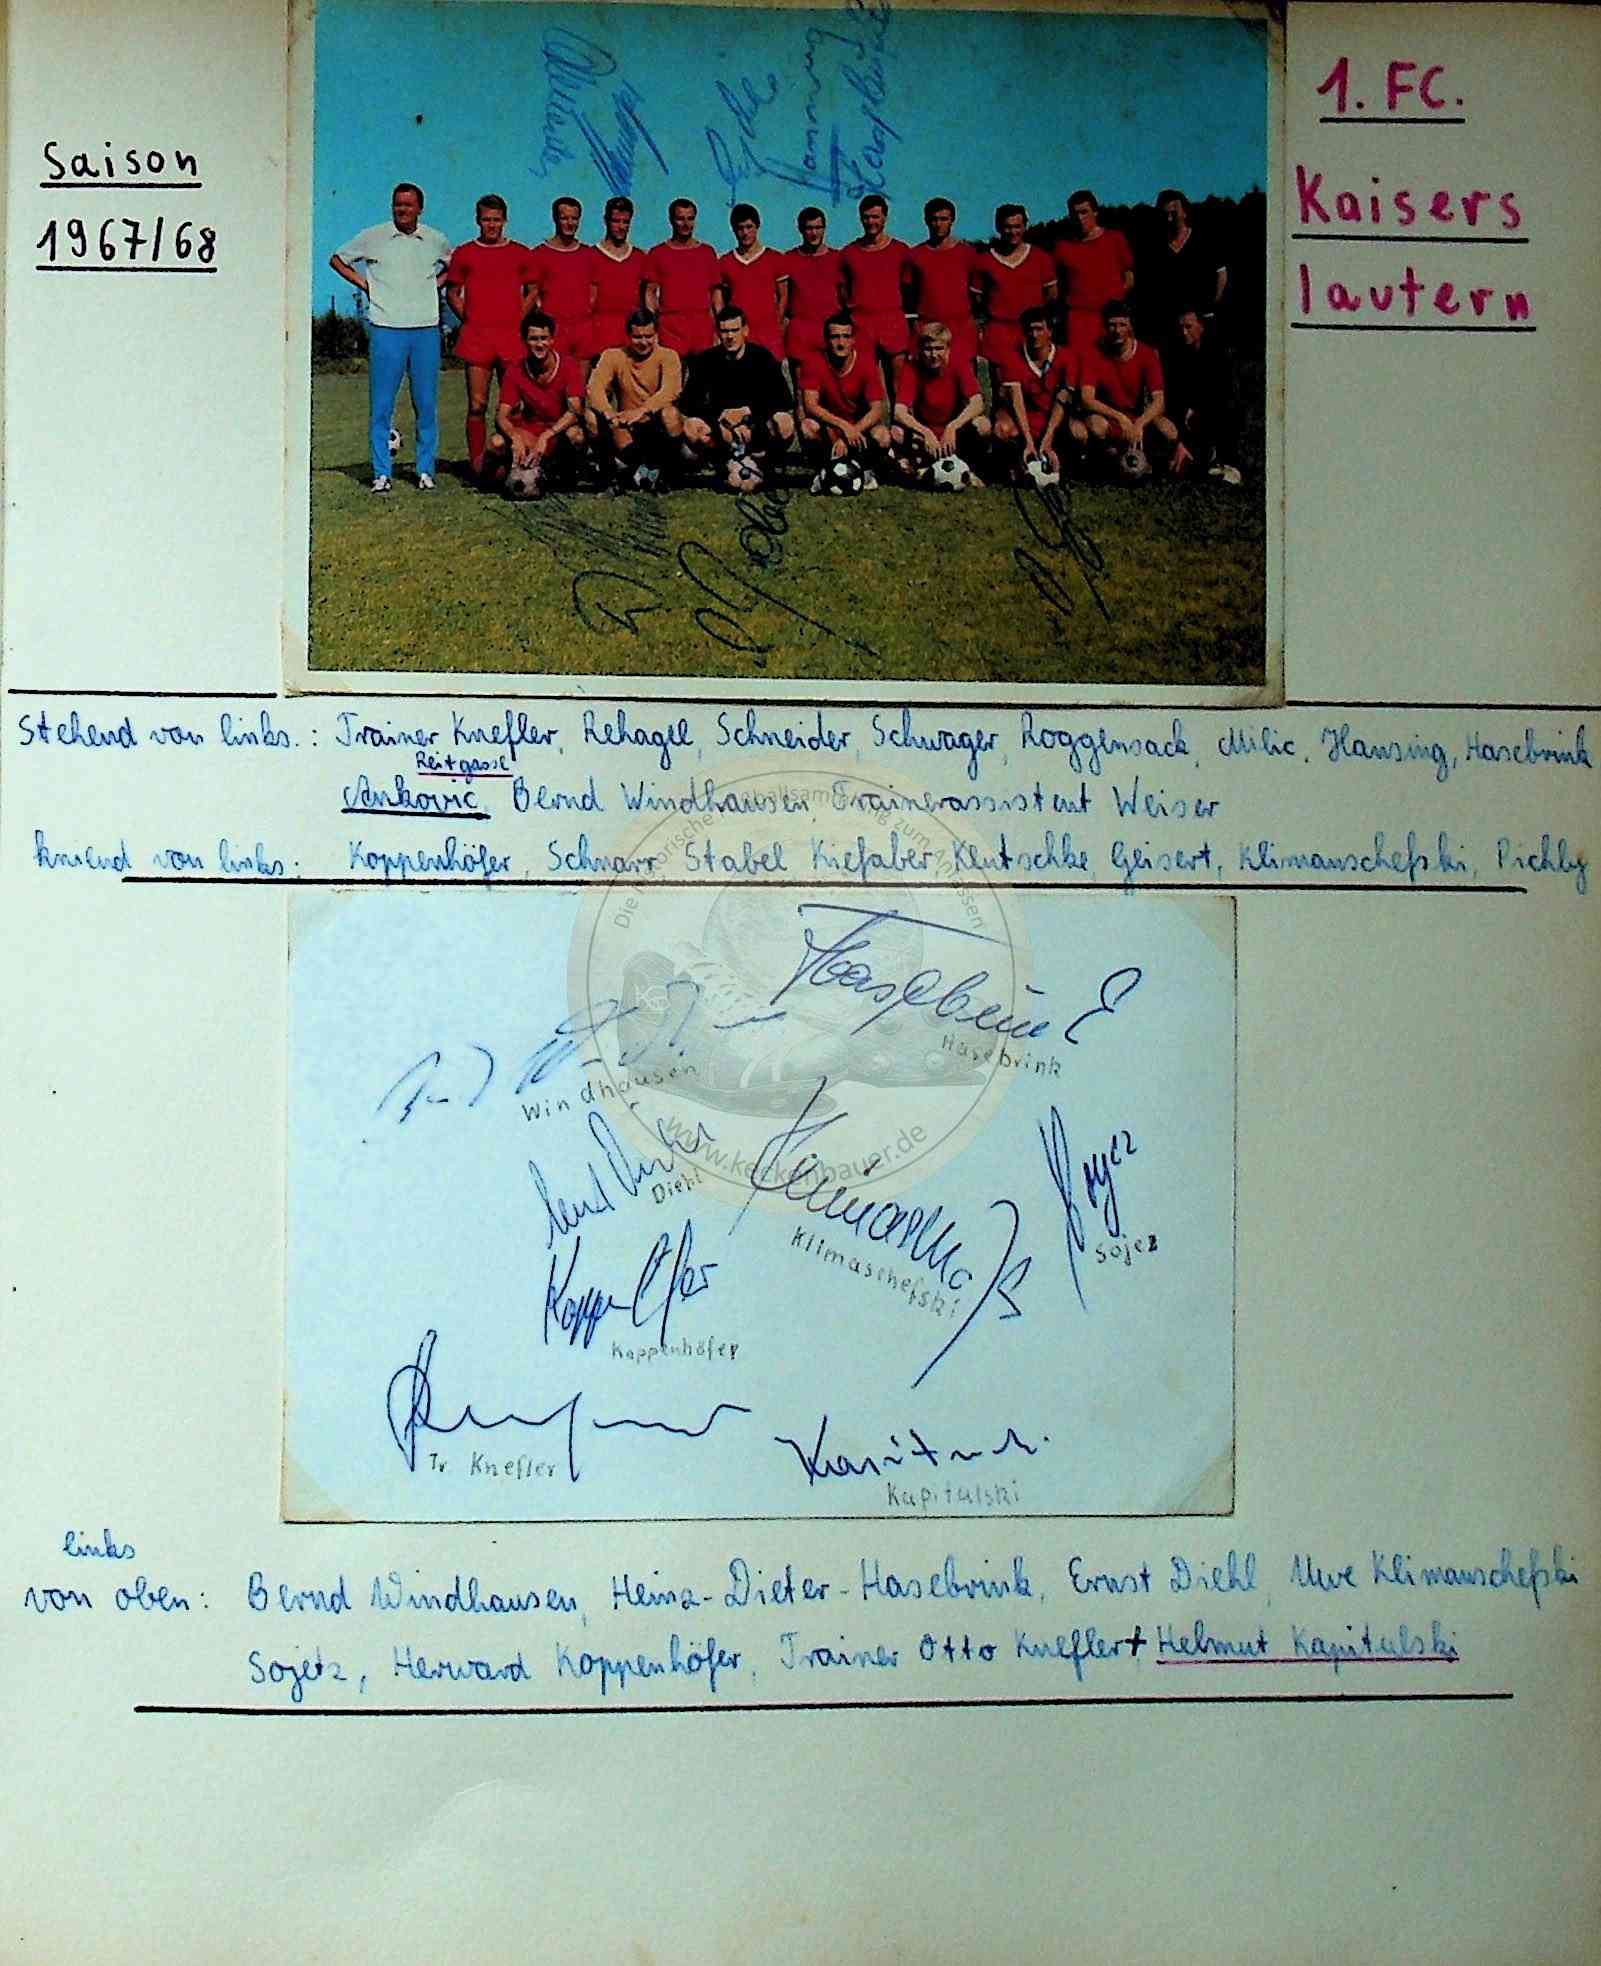 Saison
1967/68
1. FC.
Kaisers
lautern
Stehend von links.: Trainer Knefler, Rehagel, Schneider, Schwager, Roggensack, Milic, Hansing, Hasebrink
Reitgasse
Ankovic, Bernd Windhausen, Trainerassistent Weiser
kniend von links: Koppenhöfer, Schnarr Stabel Kiefaber, Klutschke, Geisert, Klimanschefski, Pichly
Hasebrink
Windhausen
Diehl
Klimaschefski
Sojez
Koppenhöfer
Tr Knefler
Kapitulski
www.keckenbauer.de
links
von oben: Bernd Windhausen, Heinz-Dieter-Hasebrink, Ernst Diehl, Uwe Klimanschefski
Sojetz, Herward Koppenhöfer, Trainer Otto Knefler + Helmut Kapitulski